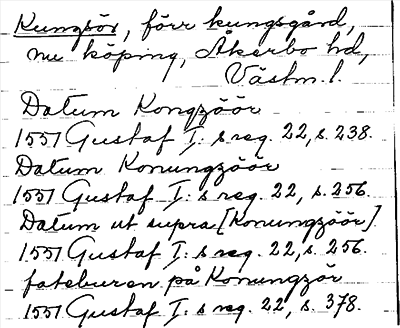 Kungsör, förr kungsgård,
nu köping, Åkerbo hd,
Västm. l.
Datum Kongzöör
1551 Gustaf I: s reg. 22, s. 238.
Datum Konungzöör
1551 Gustaf I: s reg. 22, s. 256.
Datum ut supra [Konungzöör].
1551 Gustaf I: s reg. 22, s. 256.
fateburen på Konungzör
1551 Gustaf I: s reg. 22, s. 378.